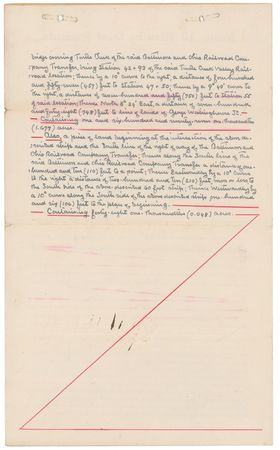 bridge crossing Turtle Creek of the said Baltimore and Ohio Railroad Com-
pany Transfer, being Station 42 + 93 of the said Turtle Creek Valley Rail-
road location; thence by a 10° curve to the right, a distance of four hundred
and fifty-seven (457) feet to Station 47 + 50; thence by a 9° 40' curve to
the right, a distance of seven hundred and fifty (750) feet to Station 55
of said location; thence North 8° 24' East, a distance of seven hundred
and forty eight (748) feet to line of lands of George Westinghouse Jr.
Containing one and six hundred and ninety seven one thousandths
(1.697) acres.
Also, a piece of land beginning at the intersection of the above de-
scribed strip and the South line of the right of way of the Baltimore and
Ohio Railroad Company Transfer; thence along the South line of the
said Baltimore and Ohio Railroad Company Transfer a distance of one
hundred and ten (110) feet to a point; thence Eastwardly by a 10° curve
to the right a distance of two hundred and ten (210) feet more or less to
the South side of the above described 60 foot strip; thence Westwardly by
a 10° curve along the South side of the above described strip one hundred
and six (106) feet to the place of beginning.
Containing forty-eight one-thousandths (0.048) acres.